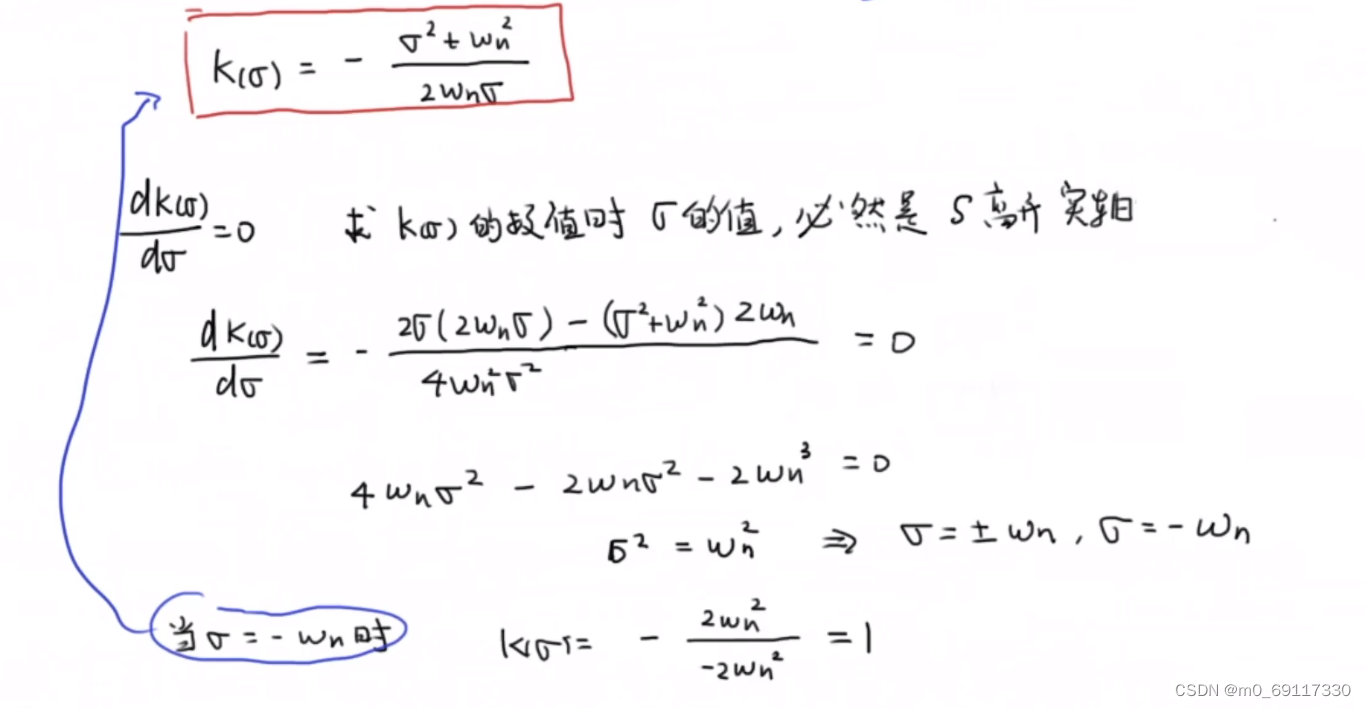 K(σ) = - (σ² + ωn²) / (2ωnσ)
dK(σ)/dσ = 0 求 K(σ) 的极值时 σ 的值，必然是 S 离开实轴
dK(σ)/dσ = - (2σ(2ωnσ) - (σ²+ωn²)2ωn) / (4ωn²σ²) = 0
4ωnσ² - 2ωnσ² - 2ωn³ = 0
σ² = ωn² ⇒ σ = ±ωn , σ = -ωn
当 σ = -ωn 时 K(σ) = - 2ωn² / -2ωn² = 1
CSDN @m0_69117330